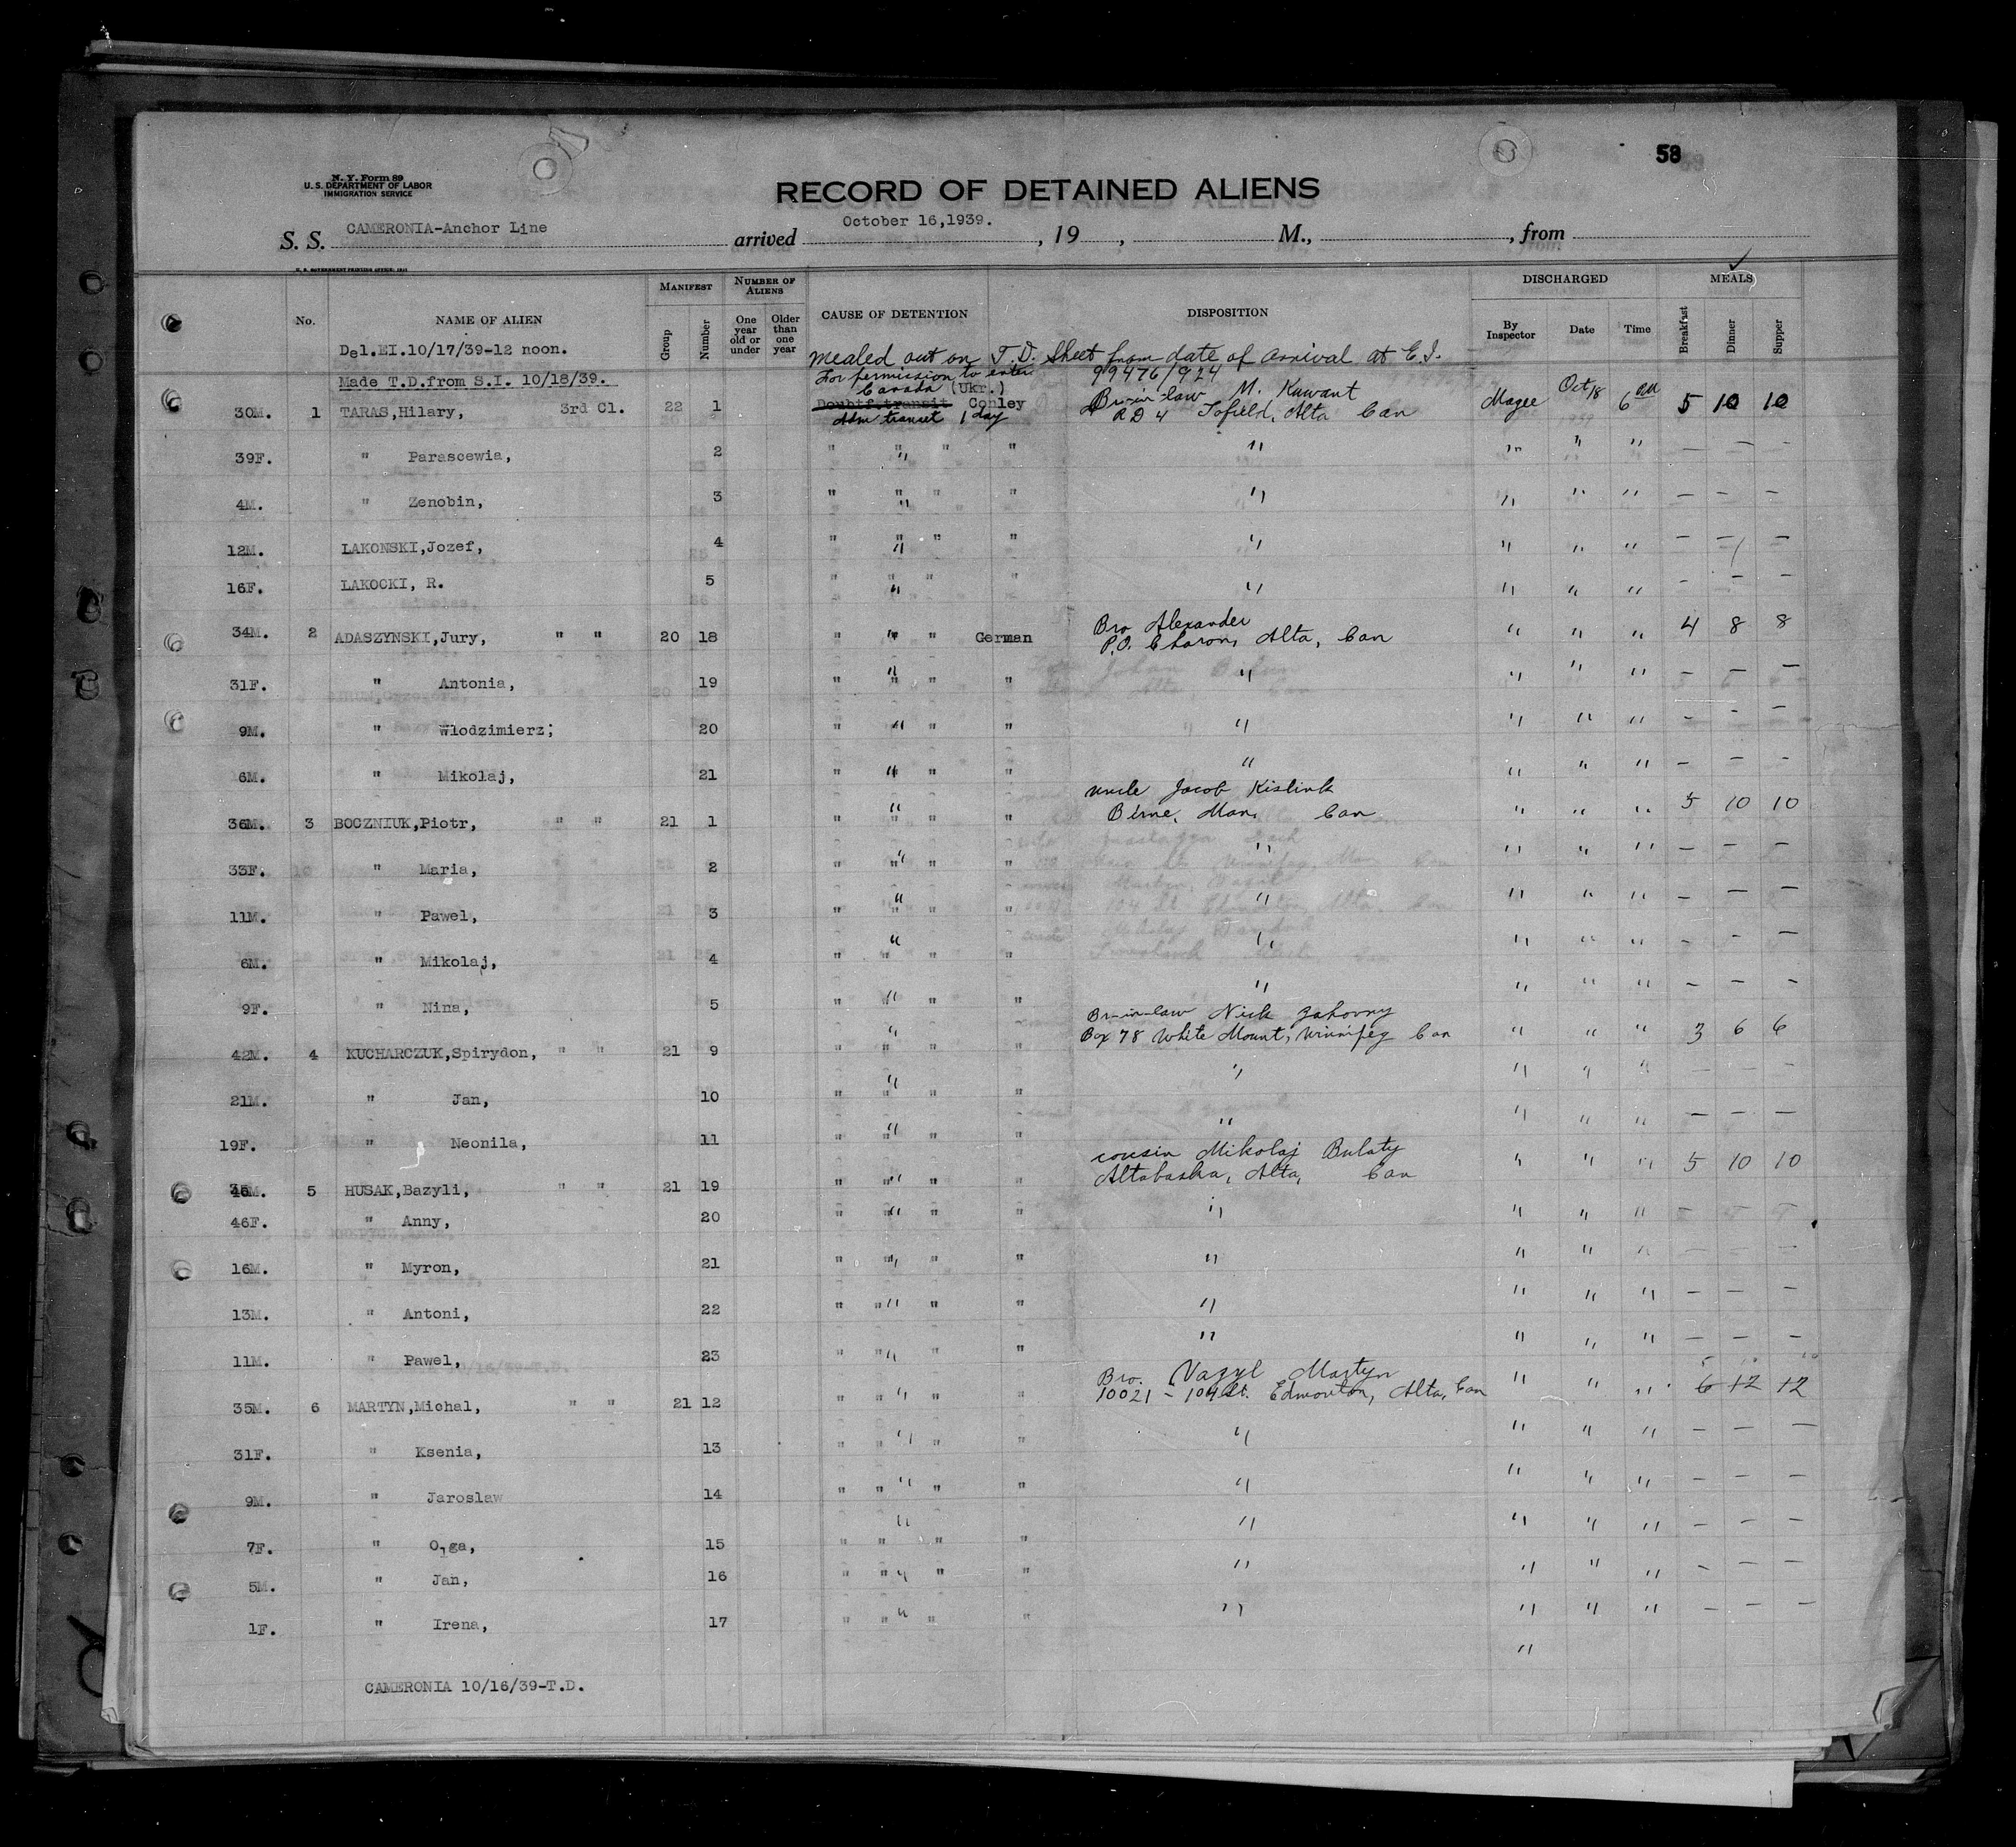 58
N. Y. Form 89
U. S. DEPARTMENT OF LABOR
IMMIGRATION SERVICE
RECORD OF DETAINED ALIENS
S. S. CAMERONIA-Anchor Line arrived October 16,1939. , 19 , M., , from
U. S. GOVERNMENT PRINTING OFFICE
No. NAME OF ALIEN MANIFEST Group Number NUMBER OF ALIENS One year old or under Older than one year CAUSE OF DETENTION DISPOSITION DISCHARGED By Inspector Date Time MEALS Breakfast Dinner Supper
Del.EI.10/17/39-12 noon. Mealed out on T.D. Sheet from date of arrival at E.I.
Made T.D.from S.I. 10/18/39. For permission to enter 99476/924
Canada (Ukr.) Br-in-law M. Kuwant
30M. 1 TARAS,Hilary, 3rd Cl. 22 1 Doubtf.transit Conley RD 4 Tofield, Alta Can Magee Oct 18 6 AM 5 10 10
Adm transit 1 day
39F. " Parascewia, 2 " " " " " " " " " — — —
4M. " Zenobin, 3 " " " " " " " " " — — —
12M. LAKONSKI,Jozef, 4 " " " " " " " " " — — —
16F. LAKOCKI, R. 5 " " " " " " " " " - - -
Bro Alexander
34M. 2 ADASZYNSKI,Jury, " " 20 18 " " " German P.O. Charon, Alta, Can " " " 4 8 8
31F. " Antonia, 19 " " " " " " " " " — — —
9M. " Wlodzimierz; 20 " " " " " " " " - - -
6M. " Mikolaj, 21 " " " " " " " " — - -
Uncle Jacob Kislink
36M. 3 BOCZNIUK,Piotr, " " 21 1 " " " " " Birne, Man, Can " " " 5 10 10
33F. " Maria, 2 " " " " " " " " " — — —
11M. " Pawel, 3 " " " " " " " " " — — —
6M. " Mikolaj, 4 " " " " " " " " " - - -
9F. " Nina, 5 " " " " " " " " — — -
Br-in-law Nick Zahorny
42M. 4 KUCHARCZUK,Spirydon, " " 21 9 " " " " " Box 78 White Mount, Winnipeg Can " " " 3 6 6
21M. " Jan, 10 " " " " " " " " " — — —
19F. " Neonila, 11 " " " " " " " " — — —
cousin Mikolaj Bulaty
5 HUSAK,Bazyli, " " 21 19 " " " " Altabaska, Alta, Can " " " 5 10 10
46F. " Anny, 20 " " " " " " " " - - -
16M. " Myron, 21 " " " " " " " " — — —
13M. " Antoni, 22 " " " " " " " " " — — —
11M. " Pawel, 23 " " " " " " " " — — —
Bro. Vazyl Martyn
35M. 6 MARTYN,Michal, " " 21 12 " " " " " 10021 - 104 St. Edmonton, Alta, Can " " " 6 12 12
31F. " Ksenia, 13 " " " " " " " " " — — —
9M. " Jaroslaw 14 " " " " " " " " " — — —
7F. " Olga, 15 " " " " " " " " " — — —
5M. " Jan, 16 " " " " " " " " " - — —
1F. " Irena, 17 " " " " " " " " " — — —
"
CAMERONIA 10/16/39-T.D.